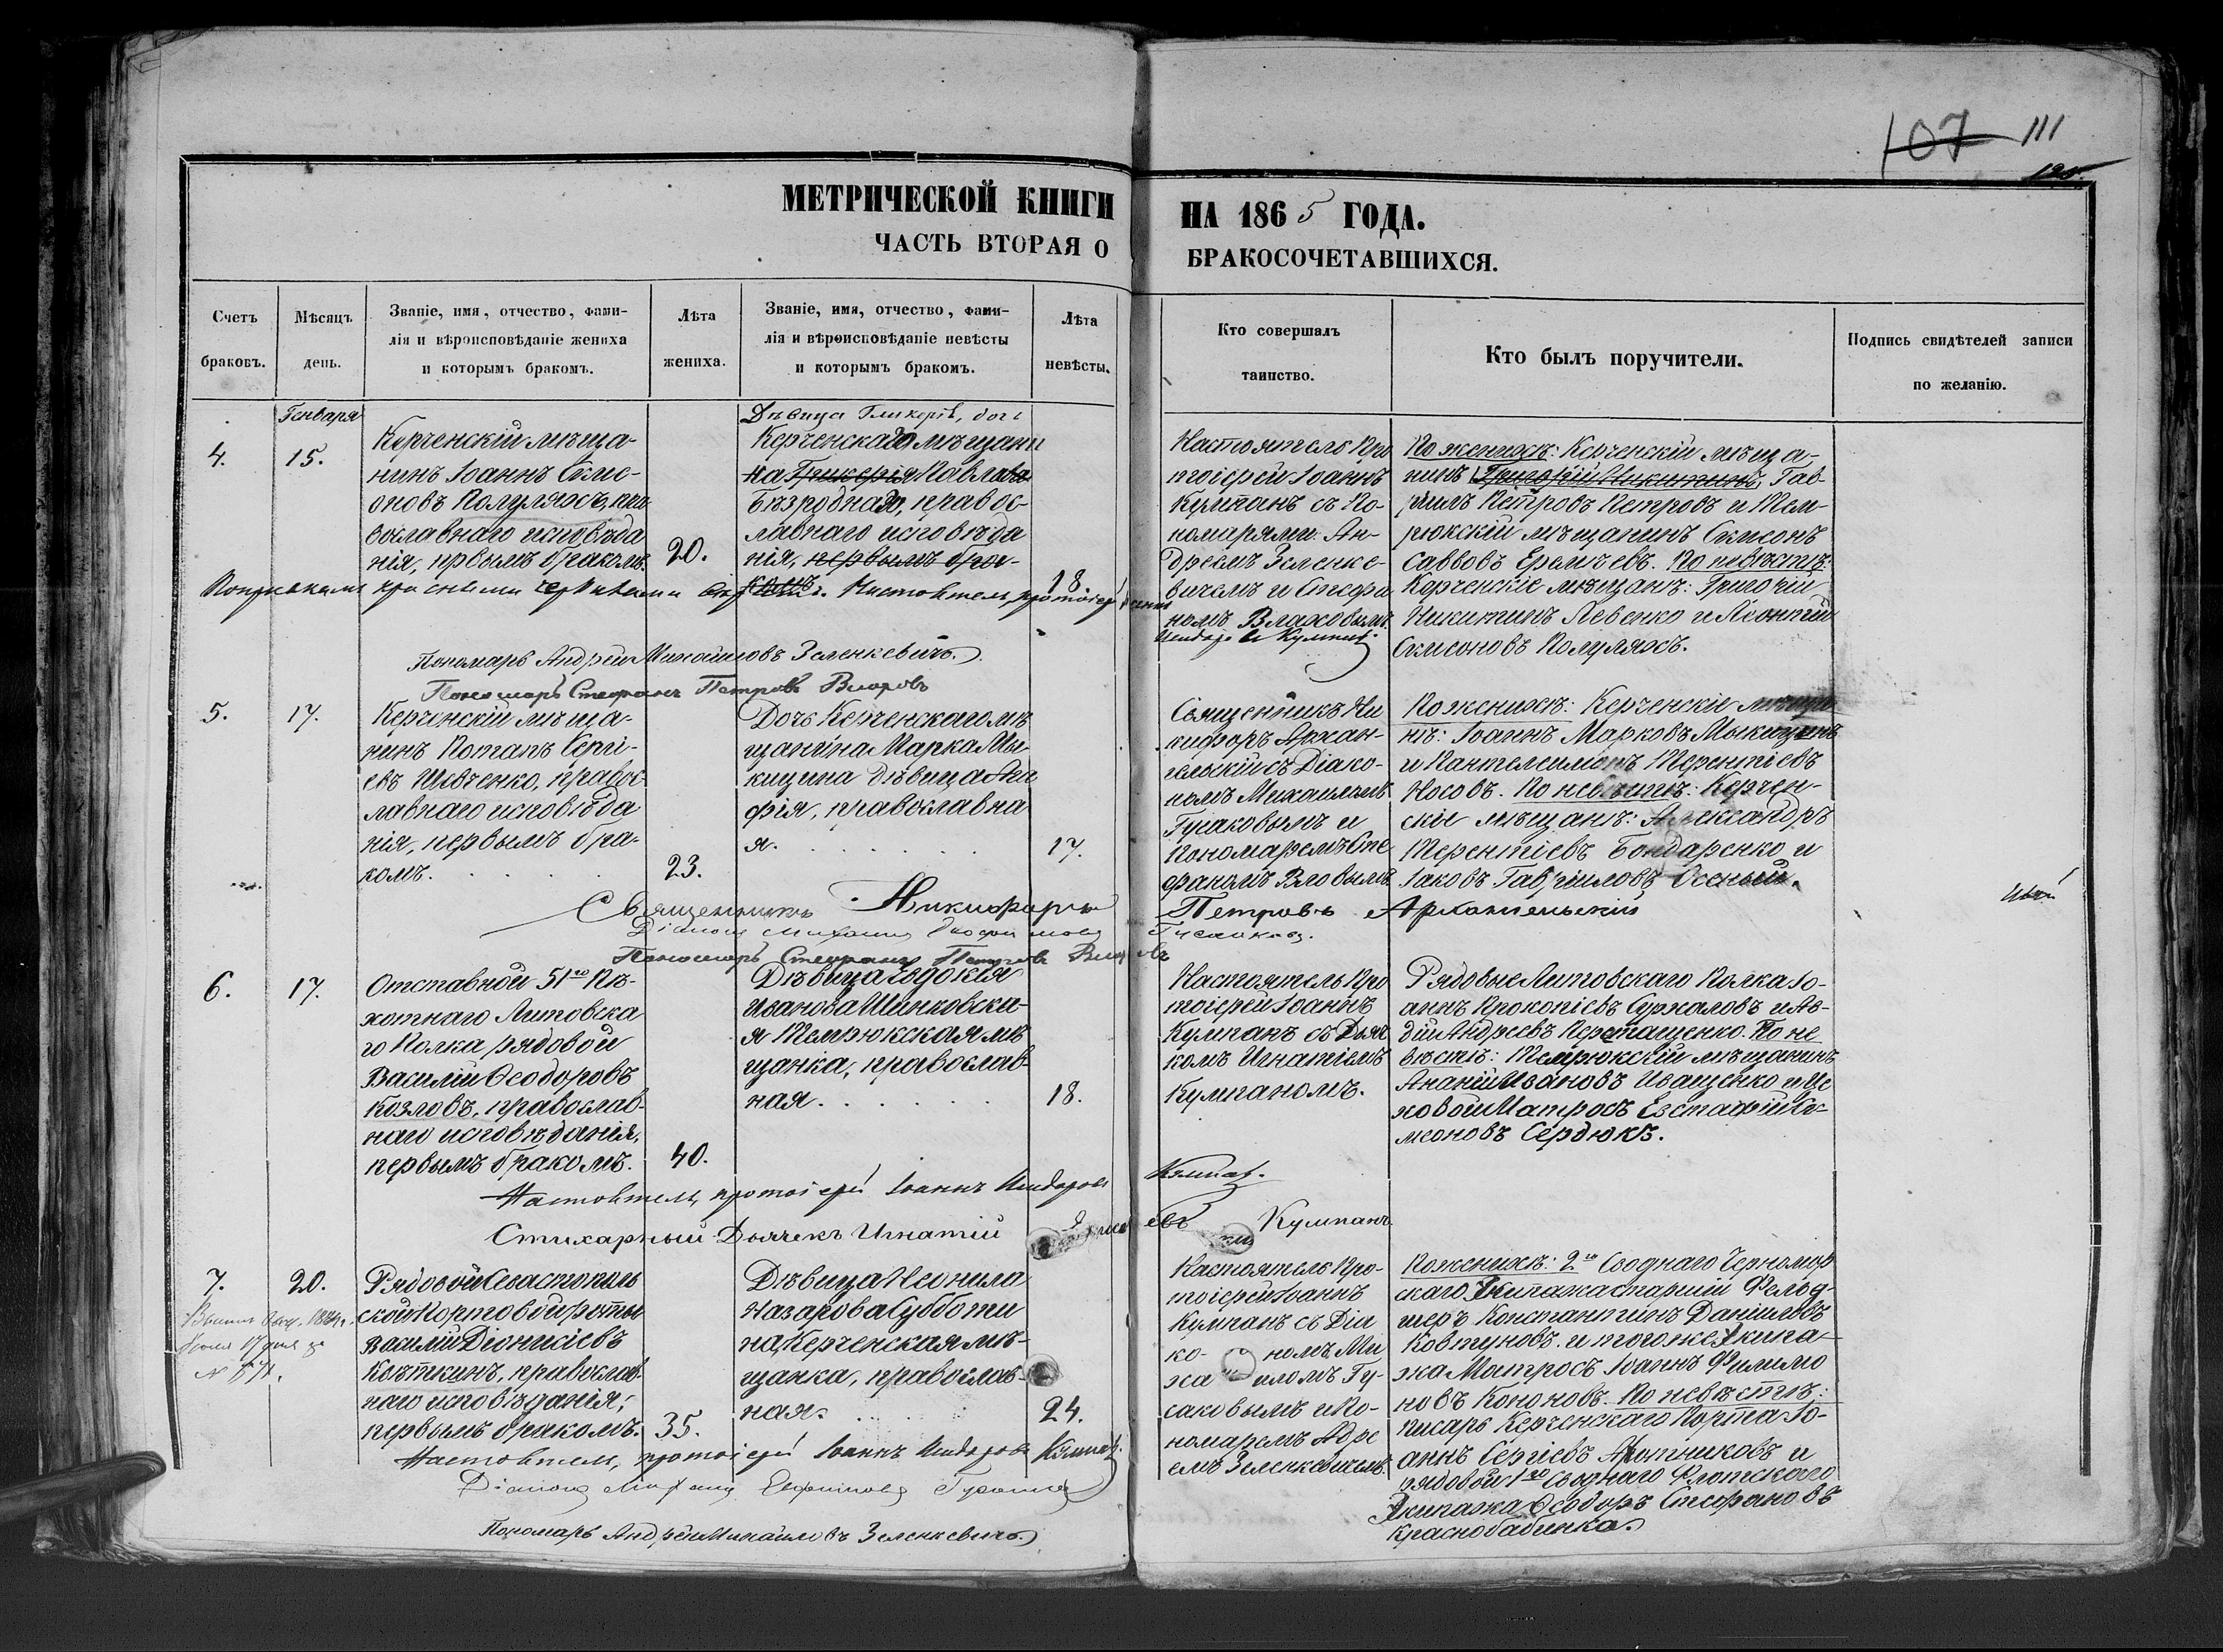 107 111
125.
МЕТРИЧЕСКОЙ КНИГИ НА 1865 ГОДА.
ЧАСТЬ ВТОРАЯ О БРАКОСОЧЕТАВШИХСЯ.
Счетъ браковъ.
Мѣсяцъ день.
Званіе, имя, отчество, фами-
лія и вѣроисповѣданіе жениха
и которымъ бракомъ.
Лѣта жениха.
Званіе, имя, отчество, фами-
лія и вѣроисповѣданіе невѣсты
и которымъ бракомъ.
Лѣта невѣсты.
Кто совершалъ
таинство.
Кто былъ поручители.
Подпись свидѣтелей записи
по желанію.
Генваря
4.
15.
Керченскій мѣща-
нинъ Іоаннъ Симе-
оновъ Полуляхъ, пра-
вославнаго исповѣда
нія, првымъ бракомъ.
20.
Дѣвица Гликерія, дочь
Керченскаго мѣщани
на Гликерія Павлова
Безроднаго, правос-
лавнаго исповѣда
нія, первымъ бра-
комъ.
18.
Настоятель Про
тоіерей Іоаннъ
Кумпанъ съ По-
номарями: Ан-
дреемъ Зеленке-
вичемъ и Стефа
номъ Влаховымъ.
По женихѣ: Керченскій мѣща-
нинъ Григорій Никитинъ, Гав-
ріилъ Петровъ Петровъ и Тем-
рюкскій мѣщанинъ Симеонъ
Саввовъ Еремѣевъ. По невѣстѣ:
Керченскіе мѣщанъ: Григорій
Никитинъ Левенко и Леонтій
Симеоновъ Полуляхъ.
Настоятель, протоіерей
Пономарь Андрей Михайловъ Зеленкевичъ.
Пономарь Стефанъ Петровъ
5.
17.
Керченскій мѣща-
нинъ Потапъ Сергі-
евъ Шевченко, правос-
лавнаго исповѣда
нія, первымъ бра-
комъ.
23.
Дочь Керченскаго мѣ
щанина Марка Мы-
кицина дѣвица Ага
фія, православна
я.
17.
Священникъ Ни
кифоръ Архан-
гельскій съ Діако-
номъ Михаиломъ
Гусаковымъ и
Пономаремъ Сте
фаномъ
По женихѣ: Керченскіе мѣща
нѣ: Іоаннъ Марковъ Мыкицинъ
и Пантелеимонъ Терентіевъ
Носовъ. По невѣстѣ: Керчен-
скіе мѣщанѣ: Александръ
Терентіевъ Бондаренко и
Іаковъ Гавріиловъ Осеный.
Священникъ Никифоръ Петровъ Архангельскій
Діаконъ Михаилъ Гусаковъ.
Пономарь Стефанъ Петровъ
6.
17.
Отставной 51го Пѣ-
хотнаго Литовска
го Полка рядовой
Василій Ѳеодоровъ
Козловъ, православ-
наго исповѣданія,
первымъ бракомъ.
40.
Дѣвица Евдокія
Иванова Шинковска-
я Темрюкская мѣ
щанка, православ-
ная.
18.
Настоятель Про
тоіерей Іоаннъ
Кумпанъ съ Дьяч
комъ Игнатіемъ
Кумпаномъ.
Рядовые Литовскаго Полка Іо-
аннъ Прокопіевъ Суржаловъ и Ав-
дій Андреевъ Перетащенко. По не
вѣстѣ: Темрюкскій мѣщанинъ
Ананій Ивановъ Иващенко и Це
ховой Матросъ Евстафій Си-
меоновъ Сердюкъ.
Настоятель, протоіерей Іоаннъ Исидоровъ Кумпанъ.
Стихарный Дьячекъ Игнатій Кумпанъ
7.
20.
Рядовой Севастополь
ской Портовой роты
Василій Діонисіевъ
Коѣткинъ, православ-
наго исповѣданія,
первымъ бракомъ.
35.
Дѣвица Неонила
Назарова Субботи
на, Керченская мѣ-
щанка, православ-
ная.
24.
Настоятель Про-
тоіерей Іоаннъ
Кумпанъ съ Діа
ко- номъ Ми
ха иломъ Гу-
саковымъ и По-
номаремъ Адре
емъ Зеленкевичемъ.
По женихѣ: 2го Своднаго Черномор
скаго Экипажа старшій Фельд-
шеръ Константинъ Даніиловъ
Ковтуновъ. и того же Экипа-
жа Матросъ Іоаннъ Филимо
новъ Кононовъ. По невѣстѣ:
писарь Керченскаго Порта Іо-
аннъ Сергіевъ и
рядовой 1го Своднаго Флотскаго
Экипажа Ѳеодоръ Стефановъ
Краснобабенко.
Настоятель, протоіерей Іоаннъ Исидоровъ Кумпанъ.
Діаконъ Михаилъ Гусаковъ
Пономарь Андрей Михайловъ Зеленкевичъ.